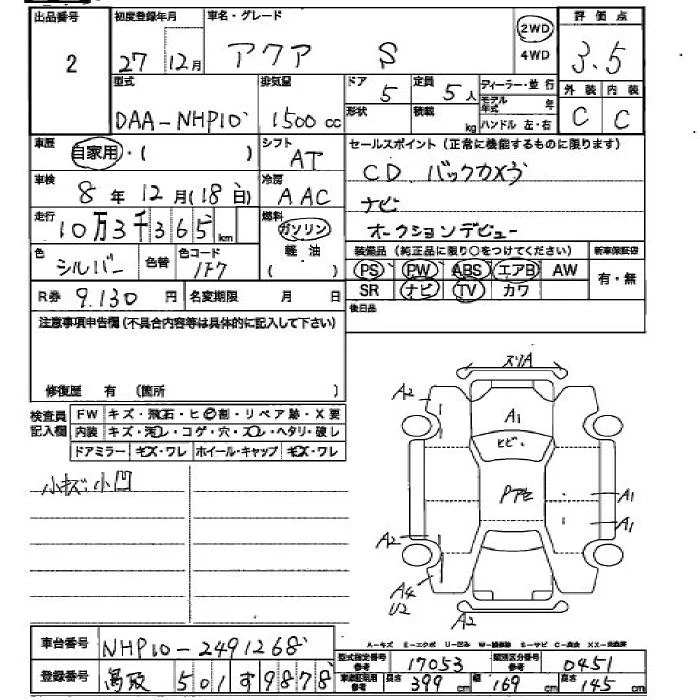 出品番号 初度登録年月 車名・グレード 評価点
2 27 12月 アクア S 2WD 4WD 3.5
型式 排気量 ドア 5 定員 5人 ディーラー・並行 外装 内装
DAA-NHP10 1500cc 形状 積載 kg モデル年式 年 C C
ハンドル 左・右
車歴 自家用・( ) シフト AT セールスポイント(正常に機能するものに限ります)
車検 8年12月(18日) 冷房 AAC CD バックカメラ
ナビ
走行 10万3千365km 燃料 ガソリン オークションデビュー
軽・油 ( )
色 シルバー 色替 色コード 1F7 装備品(純正品に限り○をつけてください) 新車保証書
PS PW ABS エアB AW 有・無
R券 9.130円 名変期限 月 日 SR ナビ TV カワ
注意事項申告欄(不具合内容等は具体的に記入して下さい) 後日品
修復歴 有 (箇所 )
検査員記入欄 FW キズ・飛石・ヒビ割・リペア跡・X要
内装 キズ・汚レ・コゲ・穴・スレ・ヘタリ・破レ
ドアミラー キズ・ワレ ホイール・キャップ キズ・ワレ
小キズ 小凹
スリA
A2
A1
ヒビ
A1
A1
A2
A4
U2
A2
A-キズ E-エクボ U-凹み W-補修跡 S-サビ C-腐食 XX-交換済
車台番号 NHP10-2491268
型式指定番号 参考 17053 類別区分番号 参考 0451
登録番号 鳥取 501す9878
車庫証明用 参考 長さ 399cm 幅 169cm 高さ 145cm